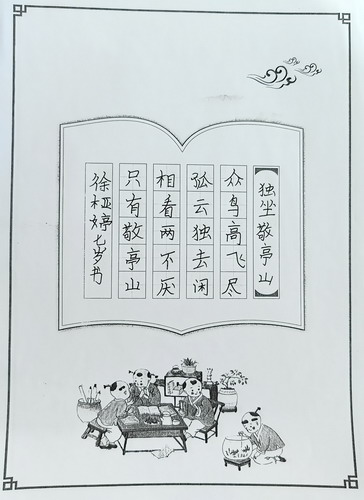 独坐敬亭山
众鸟高飞尽
孤云独去闲
相看两不厌
只有敬亭山
徐桠婷七岁书